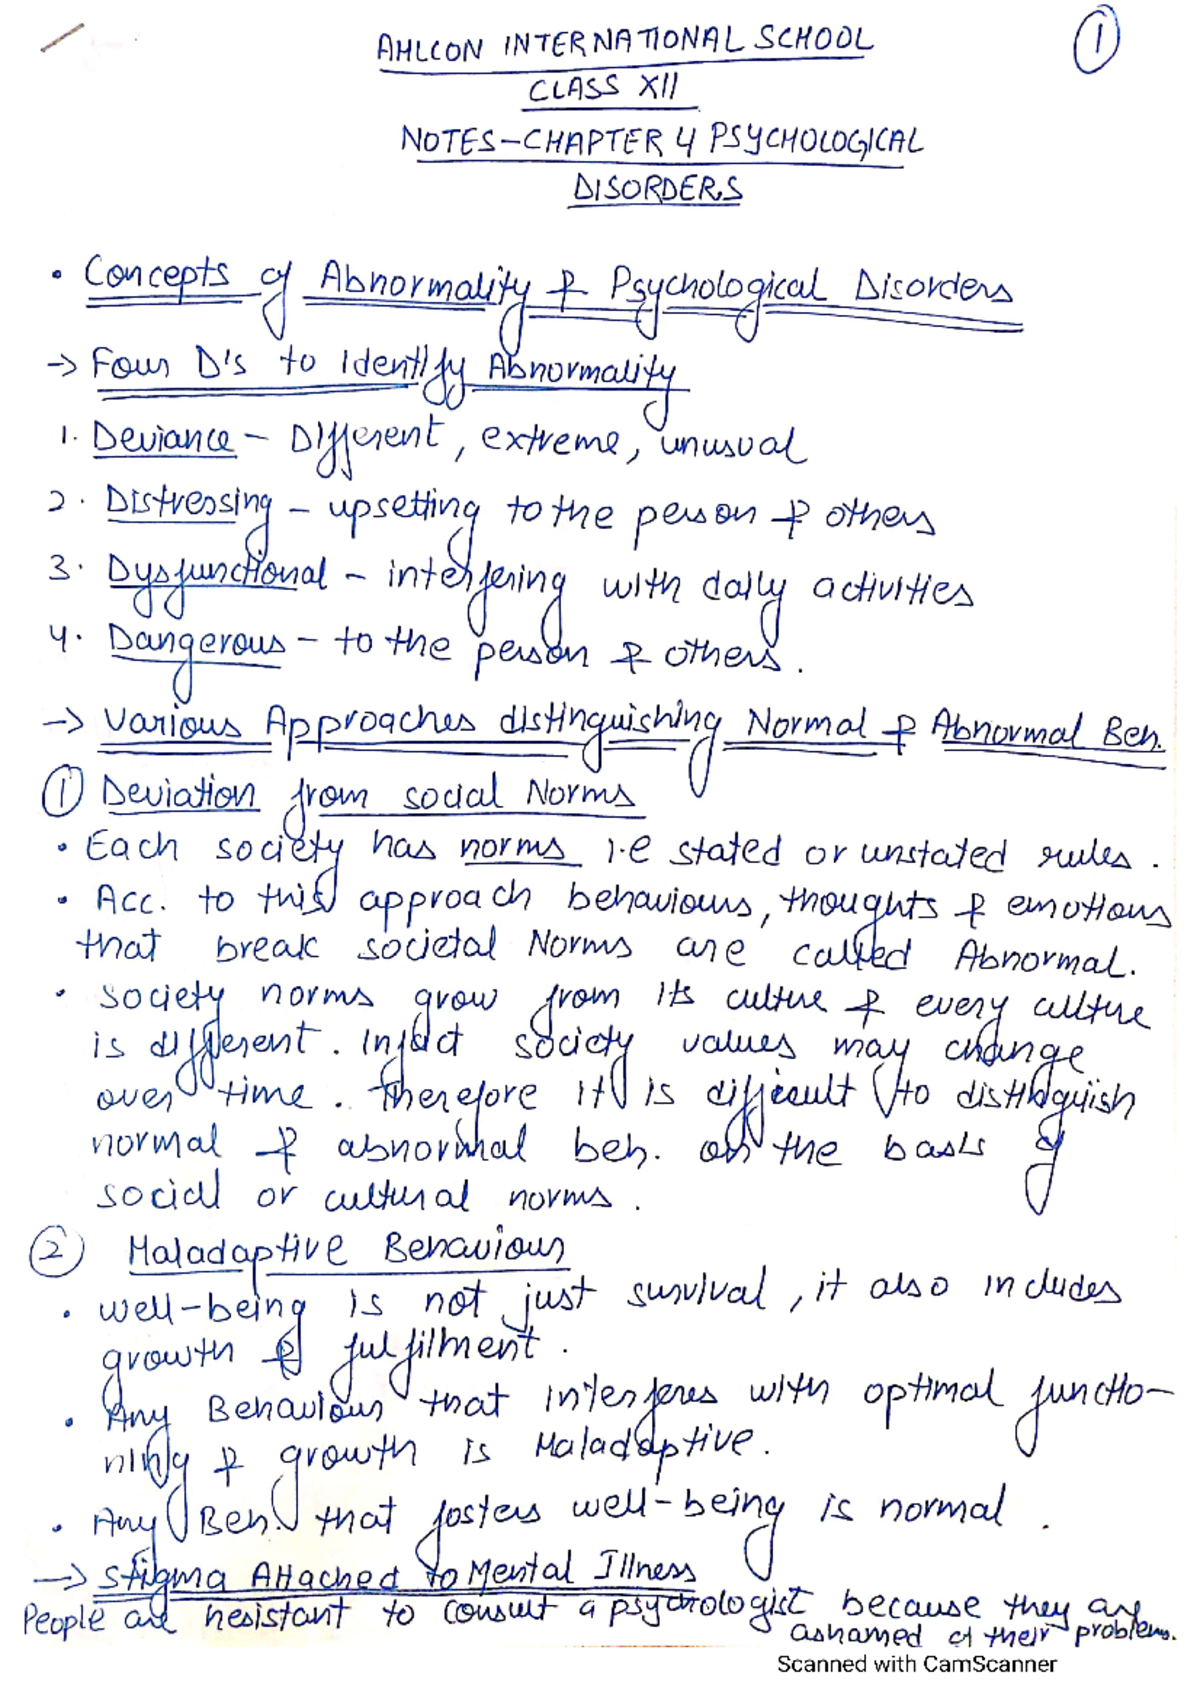 AHLCON INTERNATIONAL SCHOOL
1
CLASS XII
NOTES-CHAPTER 4 PSYCHOLOGICAL
DISORDERS
• Concepts of Abnormality & Psychological Disorders
→ Four D's to Identify Abnormality
1. Deviance - Different, extreme, unusual
2. Distressing - upsetting to the person & others
3. Dysfunctional - interfering with daily activities
4. Dangerous - to the person & others.
→ Various Approaches distinguishing Normal & Abnormal Beh.
① Deviation from social Norms
• Each society has norms i.e stated or unstated rules.
• Acc. to this approach behaviours, thoughts & emotions
that break societal Norms are called Abnormal.
• Society norms grow from its culture & every culture
is different. Infact society values may change
over time. Therefore it is difficult to distinguish
normal & abnormal beh. on the basis of
social or cultural norms.
② Maladaptive Behaviour
• well-being is not just survival, it also includes
growth & fulfilment.
• Any Behaviour that interferes with optimal functio-
ning & growth is Maladaptive.
• Any Beh. that fosters well-being is normal.
→ Stigma Attached to Mental Illness
People are hesistant to consult a psychologist because they are
ashamed of their problems.
Scanned with CamScanner